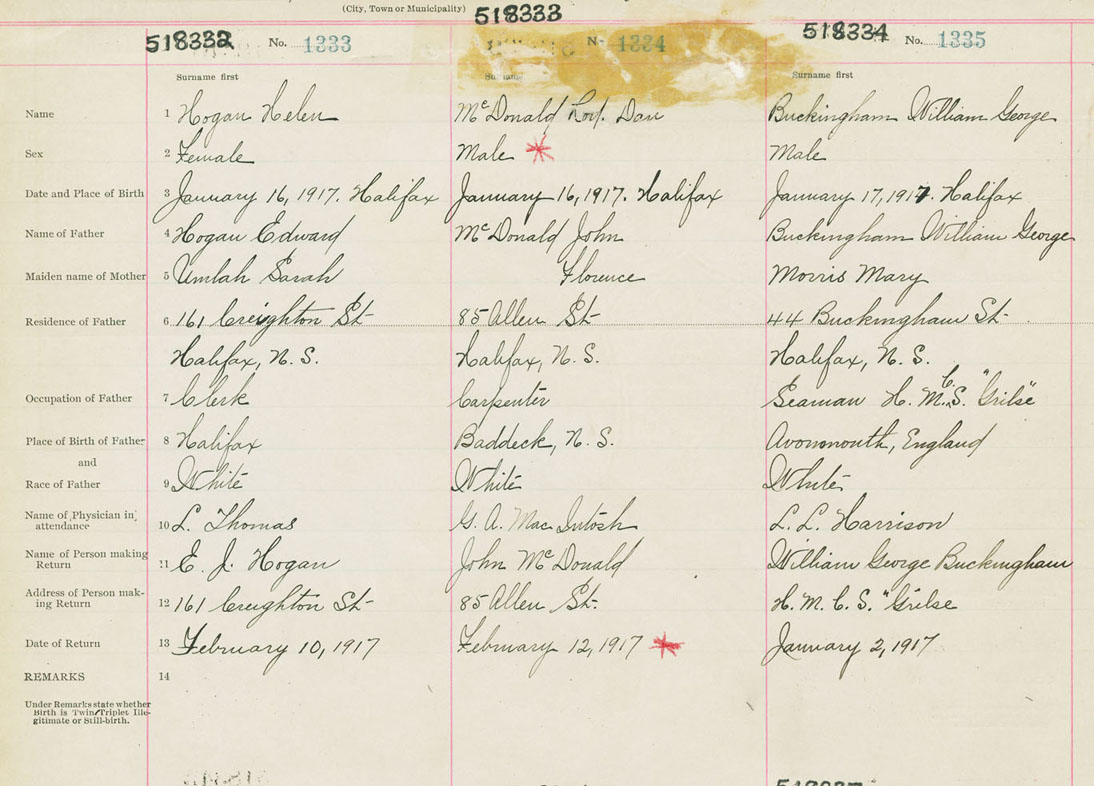 (City, Town or Municipality)
518332 No. 1333 518333 No. 1334 518334 No. 1335
Surname first Surname Surname first
Name 1 Hogan Helen McDonald Roy. Dan Buckingham William George
Sex 2 Female Male Male
Date and Place of Birth 3 January 16, 1917. Halifax January 16, 1917. Halifax January 17, 1917. Halifax
Name of Father 4 Hogan Edward McDonald John Buckingham William George
Maiden name of Mother 5 Umlah Sarah Florence Morris Mary
Residence of Father 6 161 Creighton St- 85 Allen St- 44 Buckingham St-
Halifax, N. S. Halifax, N. S. Halifax, N. S.
Occupation of Father 7 Clerk Carpenter Seaman H. M. C. S. "Grilse"
Place of Birth of Father 8 Halifax Baddeck, N. S. Avonmouth, England
and
Race of Father 9 White White White
Name of Physician in attendance 10 L. Thomas G. A. MacIntosh L. L. Harrison
Name of Person making Return 11 E. J. Hogan John McDonald William George Buckingham
Address of Person making Return 12 161 Creighton St- 85 Allen St-. H. M. C. S. "Grilse
Date of Return 13 February 10, 1917 February 12, 1917 January 2, 1917
REMARKS 14
Under Remarks state whether
Birth is Twin/Triplet Ille-
gitimate or Still-birth.